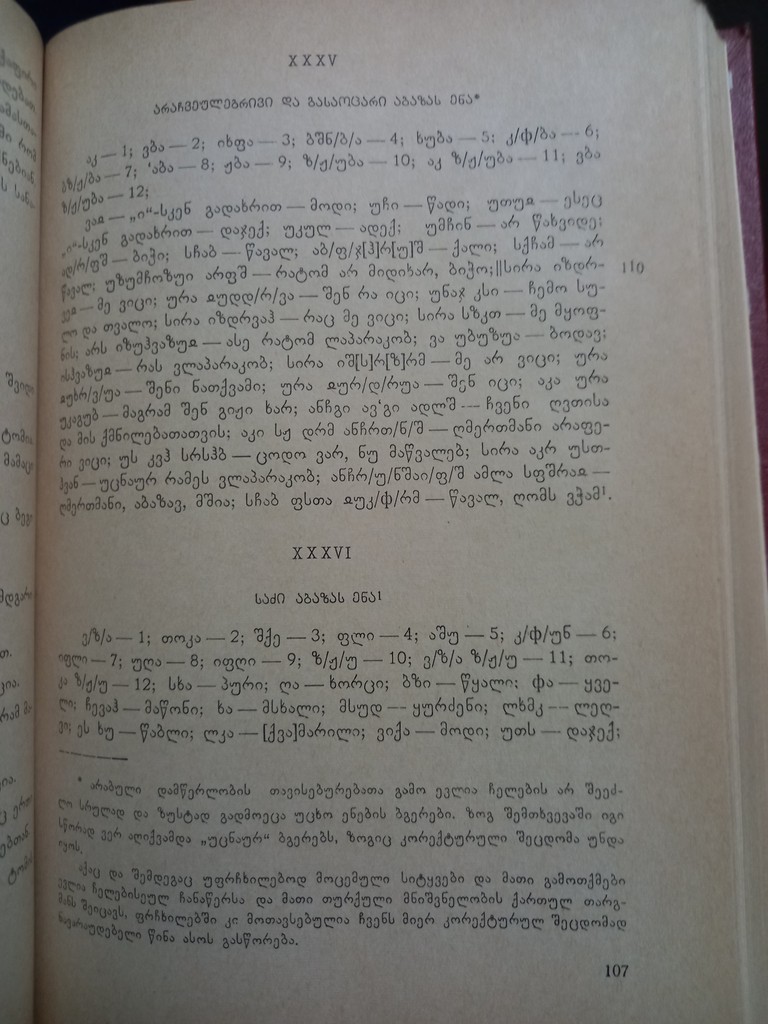 XXXV
არაჩვეულებრივი და გასაოცარი აბაზას ენა*
აკ — 1; ვბა — 2; იხფა — 3; ბშნ/ბ/ა — 4; ხუბა — 5; კ/ფ/ბა — 6;
ბზ/ჟ/ბა — 7; ʻაბა — 8; ჟბა — 9; ზ/ჟ/უბა — 10; აკ ზ/ჟ/უბა — 11; ვბა
ზ/ჟ/უბა — 12;
„ი“-სკენ გადახრით — მოდი; უჩი — წადი; — ესეც
„ი“-სკენ გადახრით — დაჯექ; უკულ — ადექ; უმჩინ — არ წახვიდე;
ად/რ/ფშ — ბიჭი; სჩაბ — წავალ; აბ/ფ/ჯ[ჰ]რ[უ]შ — ქალი; სქჩამ — არ
წავალ; უზუმჩოზუი არფშ — რატომ არ მიდიხარ, ბიჭო;‖სირა იზდრ-
110
— მე ვიცი; ურა — შენ რა იცი; უნაჯ კსი — ჩემო სუ-
ლო და თვალო; სირა იზდრვაჰ — რაც მე ვიცი; სირა სზკთ — მე მყოფ-
ნის; არს — ასე რატომ ლაპარაკობ; ვა უბუზუა — ბოდავ;
— რას ვლაპარაკობ; სირა იშ[ს]რ[ზ]რმ — მე არ ვიცი; ურა
— შენი ნათქვამი; ურა — შენ იცი; აკა ურა
უკაგუბ — მაგრამ შენ გიჟი ხარ; ანჩგი ავʻგი ადლშ — ჩვენი ღვთისა
და მის ქმნილებათათვის; აკი სჟ დრმ ანჩრთ/ნ/შ — ღმერთმანი არაფე-
რი ვიცი; უს კვჰ სრსჰბ — ცოდო ვარ, ნუ მაწვალებ; სირა აკრ უსთ-
ჰვან — უცნაურ რამეს ვლაპარაკობ; ანჩრ/უ/ნშაი/ფ/შ ამლა —
ღმერთმანი, აბაზავ, მშია; სჩაბ ფსთა — წავალ, ღომს ვჭამ¹.
XXXVI
საძი აბაზას ენა¹
ვ/ზ/ა — 1; თოკა — 2; შქე — 3; ფლი — 4; აშუ — 5; კ/ფ/უნ — 6;
იფლი — 7; უღა — 8; იფღი — 9; ზ/ჟ/უ — 10; ვ/ზ/ა ზ/ჟ/უ — 11; თო-
კა ზ/ჟ/უ — 12; სხა — პური; ღა — ხორცი; ბზი — წყალი; ფა — ყვე-
ლი; ჩევაჰ — მაწონი; ხა — მსხალი; მსუდ — ყურძენი; ლხმკ — ლეღ-
ვი; ეს ხუ — წაბლი; ლკა — [ქვა]მარილი; ვიქა — მოდი; უთს — დაჯექ;
* არაბული დამწერლობის თავისებურებათა გამო ევლია ჩელების არ შეეძ-
ლო სრულად და ზუსტად გადმოეცა უცხო ენების ბგერები. ზოგ შემთხვევაში იგი
სწორად ვერ აღიქვამდა „უცნაურ“ ბგერებს, ზოგიც კორექტურული შეცდომა უნდა
იყოს.
აქაც და შემდეგაც უფრჩხილებოდ მოცემული სიტყვები და მათი გამოთქმები
ევლია ჩელებისეულ ჩანაწერსა და მათი თურქული მნიშვნელობის ქართულ თარგ-
მანს შეიცავს, ფრჩხილებში კი მოთავსებულია ჩვენს მიერ კორექტურულ შეცდომად
ნავარაუდებელი წინა ასოს გასწორება.
107